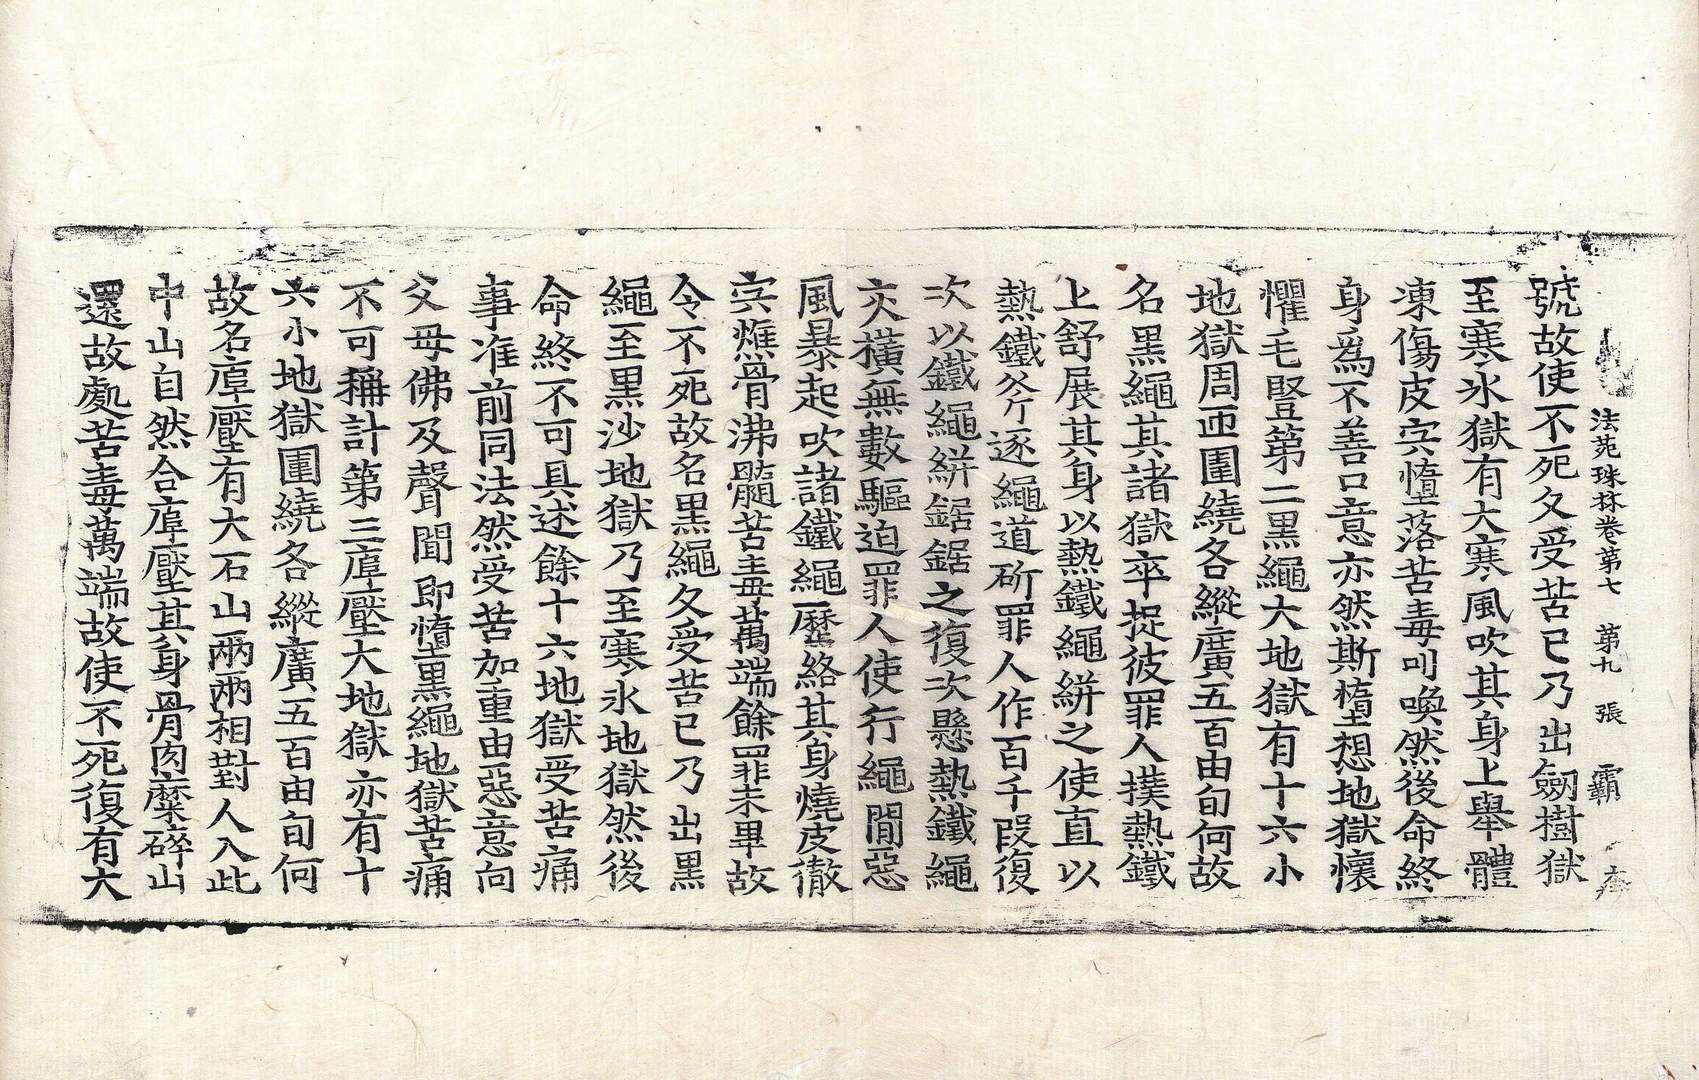 法苑珠林卷第七 第九 張 霸
號故使不死久受苦已乃出劒樹獄
至寒氷獄有大寒風吹其身上舉體
凍傷皮宍墮落苦毒叫喚然後命終
身爲不善口意亦然斯墮想地獄懷
懼毛竪第二黑繩大地獄有十六小
地獄周迊圍繞各縱廣五百由旬何故
名黑繩其諸獄卒捉彼罪人撲熱鐵
上舒展其身以熱鐵繩絣之使直以
熱鐵斧逐繩道斫罪人作百千段復
次以鐵繩絣鋸鋸之復次懸熱鐵繩
交橫無數驅迫罪人使行繩閒惡
風暴起吹諸鐵繩歷絡其身燒皮徹
宍燋骨沸髓苦毒萬端餘罪未畢故
令不死故名黑繩久受苦已乃出黑
繩至黑沙地獄乃至寒氷地獄然後
命終不可具述餘十六地獄受苦痛
事准前同法然受苦加重由惡意向
父母佛及聲聞即墮黑繩地獄苦痛
不可稱計第三塠壓大地獄亦有十
六小地獄圍繞各縱廣五百由旬何
故名塠壓有大石山兩兩相對人入此
中山自然合塠壓其身骨肉糜碎山
還故處苦毒萬端故使不死復有大